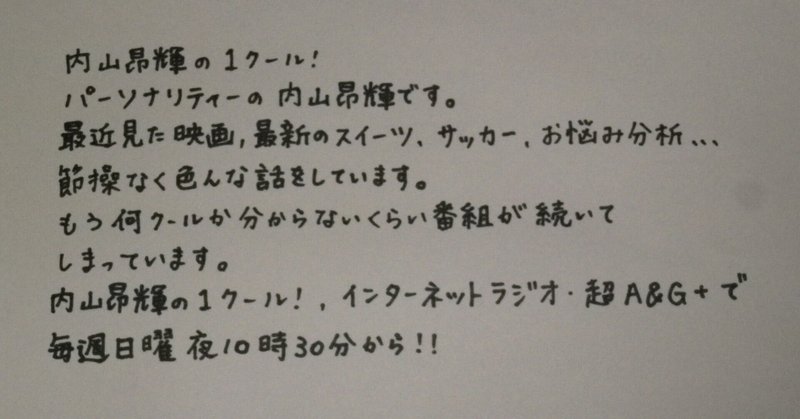 内山昂輝の1クール!
パーソナリティーの内山昂輝です。
最近見た映画,最新のスイーツ、サッカー、お悩み分析、、、
節操なく色んな話をしています。
もう何クールか分からないくらい番組が続いて
しまっています。
内山昂輝の1クール!、インターネットラジオ・超A&G+で
毎週日曜夜10時30分から!!